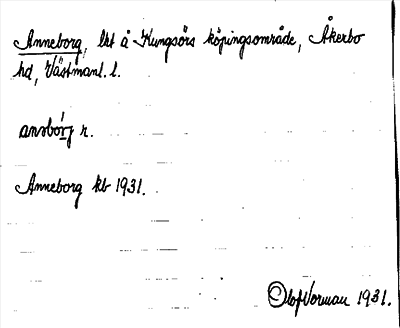 Anneborg, lht å Kungsörs köpingsområde, Åkerbo
hd, Västmanl. l.
ansbórj r.
Anneborg kb 1931.
Olof Vorman 1931.